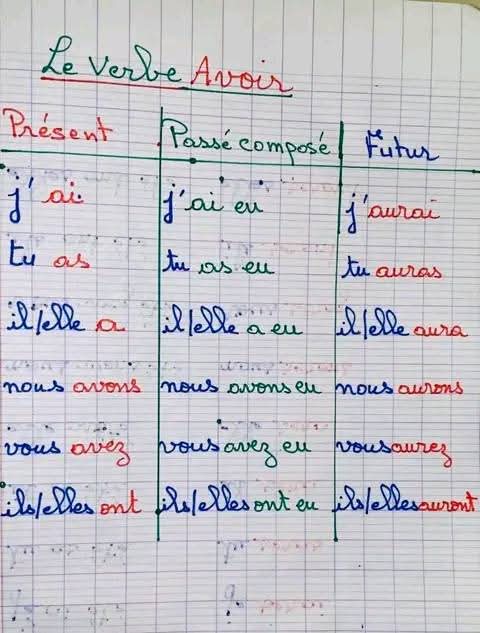 Le verbe Avoir
Présent Passé composé Futur
j'ai j'ai eu j'aurai
tu as tu as eu tu auras
il/elle a il/elle a eu il/elle aura
nous avons nous avons eu nous aurons
vous avez vous avez eu vous aurez
ils/elles ont ils/elles ont eu ils/elles auront